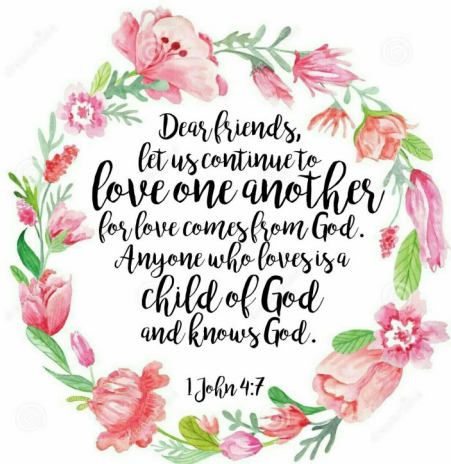 Dear friends,
let us continue to
love one another
for love comes from God.
Anyone who loves is a
child of God
and knows God.
1 John 4:7